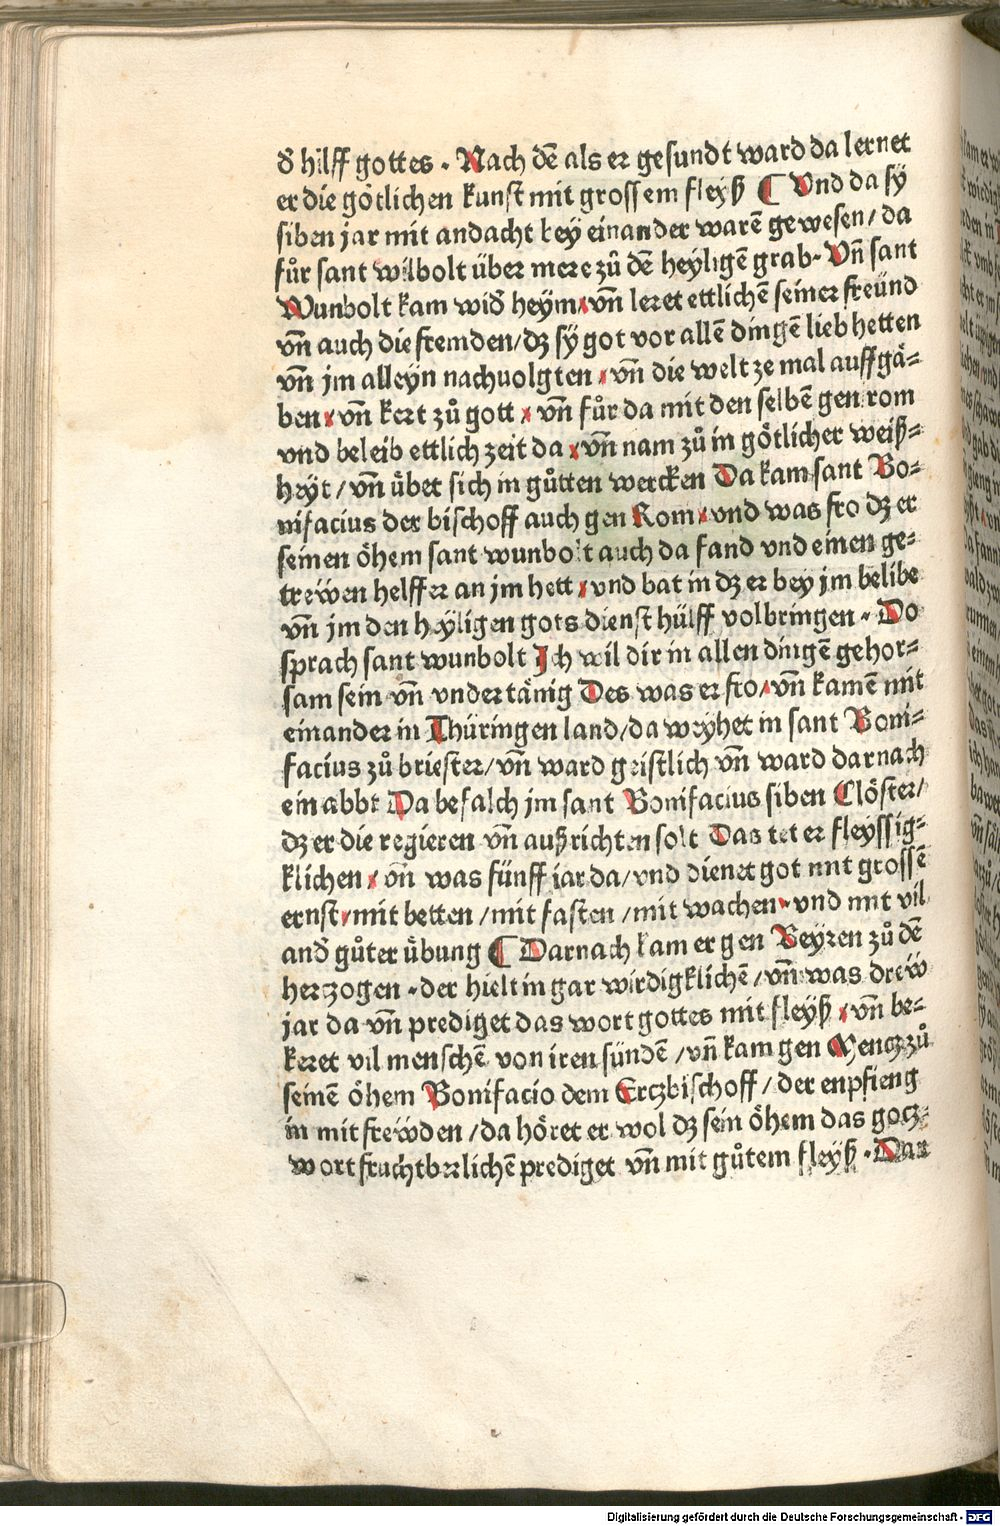 d̕ hilff gottes . Nach dē als er gesundt ward da lernet
er die götlichen kunst mit grossem fleyß ¶ Vnd da sy
siben jar mit andacht bey einander warē gewesen / da
fůr sant wilbolt über mere zů dē heyligē grab . Vn̄ sant
Wunbolt kam wid̕ heym / vn̄ leret ettlichē seiner freünd
vn̄ auch die fremden / dz sy got vor allē dingē lieb hetten
vn̄ jm alleyn nachuolgten / vn̄ die welt ze mal auffgå⸗
ben / vn̄ kert zů gott / vn̄ fůr da mit den selbē gen rom
vnd beleib ettlich zeit da / vn̄ nam zů in götlicher weiß⸗
heyt / vn̄ übet sich in gůtten wercken Da kam sant Bo⸗
nifacius der bischoff auch gen Rom / vnd was fro dz er
seinen öhem sant wunbolt auch da fand vnd einen ge⸗
trewen helffer an jm hett / vnd bat in dz er bey jm belibe
vn̄ jm den heyligen gots dienst hülff volbringen . Do
sprach sant wunbolt Ich wil dir in allen dingē gehor⸗
sam sein vn̄ vndertänig Des was er fro / vn̄ kamē mit
einander in Thüringen land / da weyhet in sant Boni⸗
facius zů briester / vn̄ ward geistlich vn̄ ward darnach
ein abbt Da befalch jm sant Bonifacius siben Clöster /
dz er die regieren vn̄ außrichten solt Das tet er fleyssig⸗
klichen / vn̄ was fünff jar da / vnd dienet got mit grossē
ernst / mit betten / mit fasten / mit wachen . vnd mit vil
and̕ gůter übung ¶ Darnach kam er gen Beyren zů dē
herzogen . der hielt in gar wirdigklichē / vn̄ was drew
jar da vn̄ prediget das wort gottes mit fleyß / vn̄ be⸗
keret vil menschē von iren sündē / vn̄ kam gen Mencz zů
seinē öhem Bonifacio dem Erczbischoff / der enpfieng
in mit frewden / da höret er wol dz sein öhem das gocz⸗
wort fruchtberlichē prediget vn̄ mit gůtem fleyß . Dar
Digitalisierung gefördert durch die Deutsche Forschungsgemeinschaft - DFG